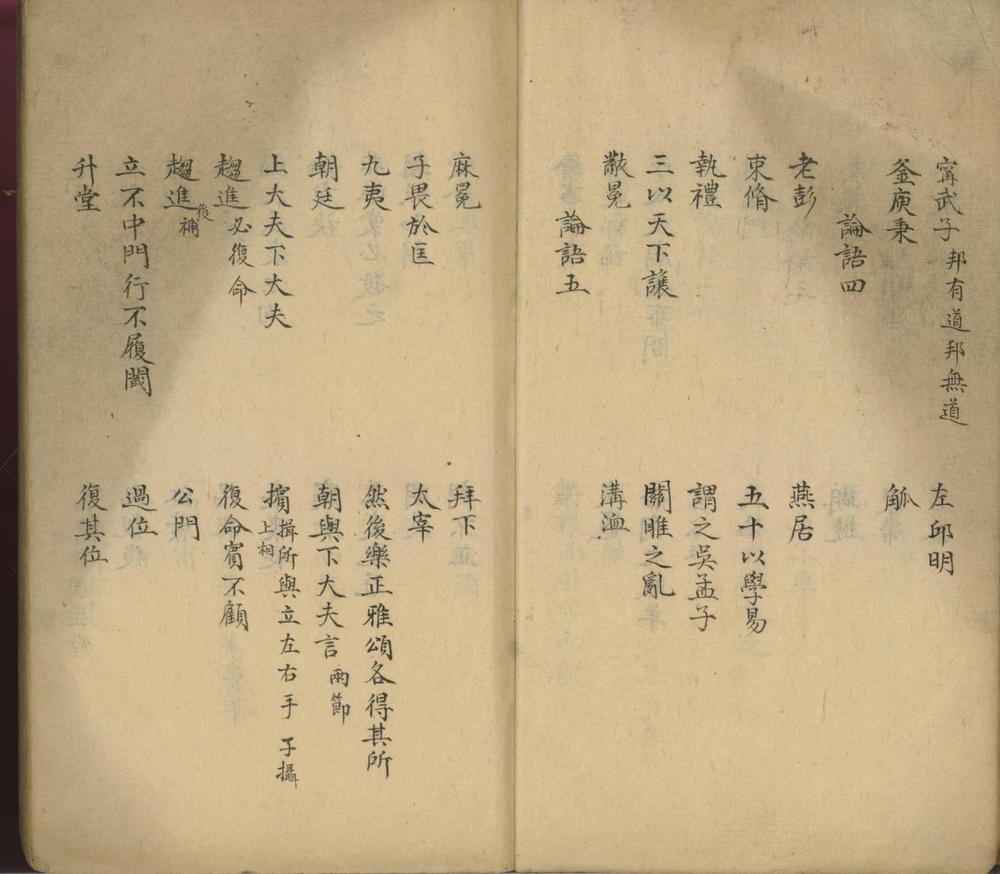 甯武子 邦有道邦無道 左邱明
釜庾秉 觚
論語四
老彭 燕居
束脩 五十以學易
執禮 謂之吳孟子
三以天下讓 關雎之亂
黻冕 溝洫
論語五
麻冕 拜下
子畏於匡 太宰
九夷 然後樂正雅頌各得其所
朝廷 朝與下大夫言 兩節
上大夫下大夫 擯 上相 揖所與立左右手 子攝
趨進 必復命 復命賓不顧
趨進 後補 公門
立不中門行不履閾 過位
升堂 復其位